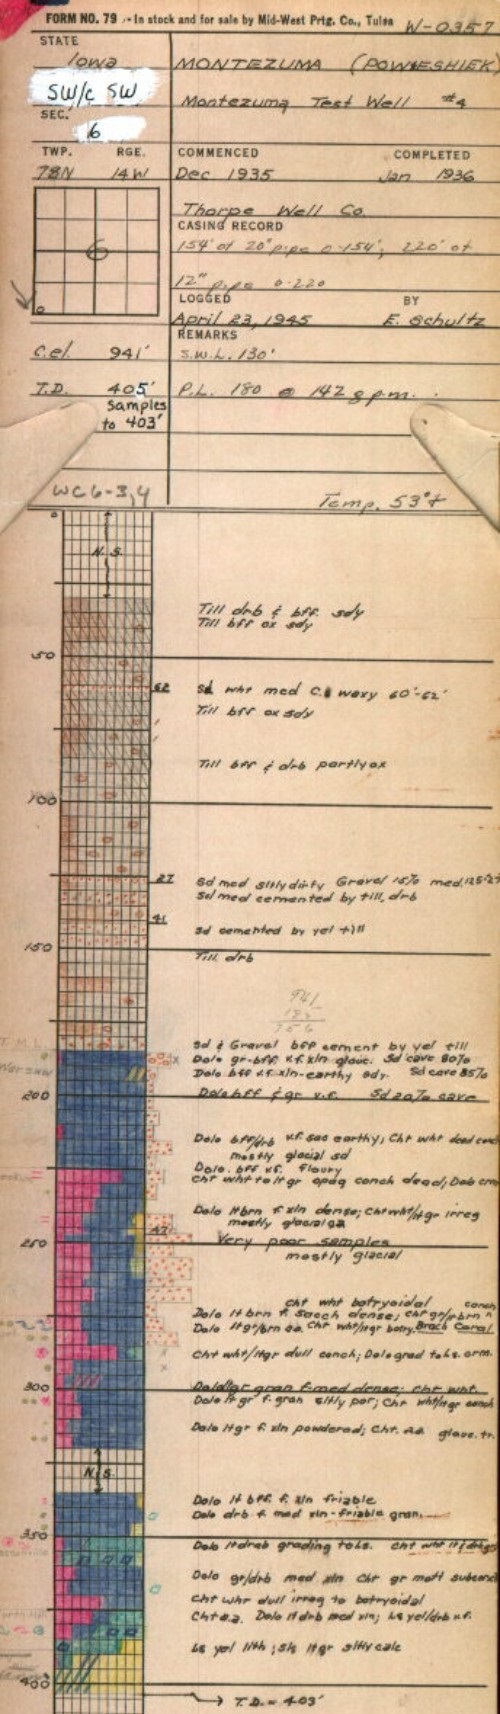 FORM NO. 79 - In stock and for sale by Mid-West Prtg. Co., Tulsa W-0357
STATE
Iowa MONTEZUMA (POWESHIEK)
SW/c SW Montezuma Test Well #4
SEC.
6
TWP. RGE. COMMENCED COMPLETED
78N 14W Dec 1935 Jan 1936
Thorpe Well Co.
CASING RECORD
6 154' of 20" pipe 0-154', 220' of
12" pipe 0-220
LOGGED BY
April 23, 1945 E. Schultz
REMARKS
C.el. 941' S.W.L. 130'
T.D. 405' P.L. 180 @ 142 gpm.
Samples
to 403'
WC6-3,4 Temp. 53°f
0
N.S.
Till drb & bff. sdy
Till bff ox sdy
50
62 Sd wht med Cl waxy 60'-62'
Till bff ox sdy
Till bff & drb partly ox
100
27 Sd med sltly dirty Gravel 15% med
Sd med cemented by till, drb
41 Sd cemented by yel till
150
Till drb
941
185
756
Sd & Gravel bff cement by yel till
Dolo gr-bff v.f. xln glauc. Sd cave 80%
Warsaw Dolo bff v.f. xln-earthy sdy. Sd cave 85%
200 Dolo bff & gr v.f. Sd 20% cave
Dolo bff/drb v.f. sac earthy; Cht wht dead conch
mostly glacial sd
Dolo. bff v.f. floury
Cht wht to lt gr opaq conch dead; Dolo crm
Dolo lt brn f. xln dense; Cht wht/lt gr irreg
mostly glacial aa
47 Very poor samples
250 mostly glacial
cht wht botryoidal conch
Dolo lt brn f. sacch dense; cht gr/brn
Dolo lt gr/brn aa. Cht wht/lt gr botry. Brach Coral
Cht wht/lt gr dull conch; Dolo grad to ls. crm.
300 Dolo lt gr gran f-med dense; Cht wht.
Dolo lt gr f. gran sltly por; Cht wht/lt gr conch
Dolo lt gr f. xln powdered; Cht. aa glauc. tr.
N.S.
Dolo lt bff. f. xln friable
Dolo drb f. med xln-friable gran.
350 Dolo lt drab grading to ls. Cht wht lt/drb gr
Dolo gr/drb med xln Cht gr mott subconch
Cht wht dull irreg to botryoidal
Cht a.a. Dolo lt drb med xln; Ls yel/drb v.f.
Ls yel lith; sls lt gr sltly calc
400
T.D. = 403'